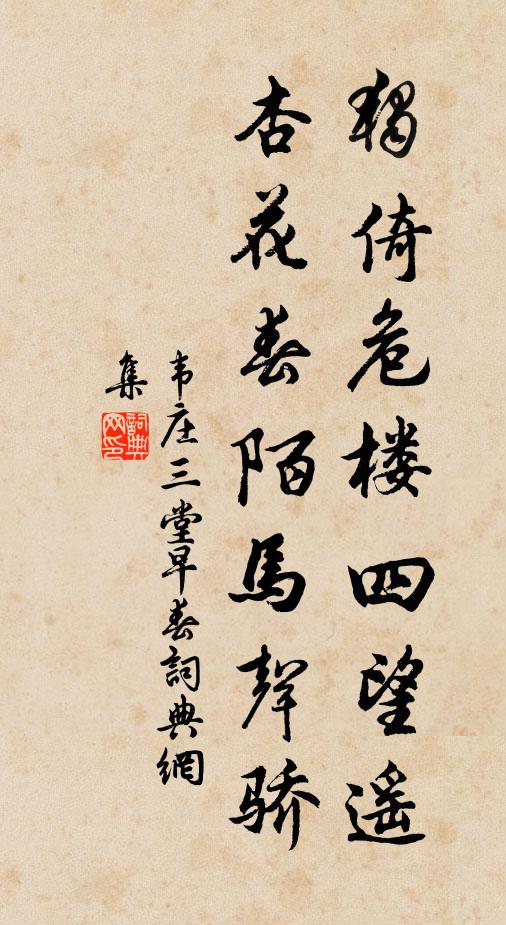 独倚危楼四望遥
杏花春陌馬聲骄
韦庄三堂早春詞典網
集
詞典網印